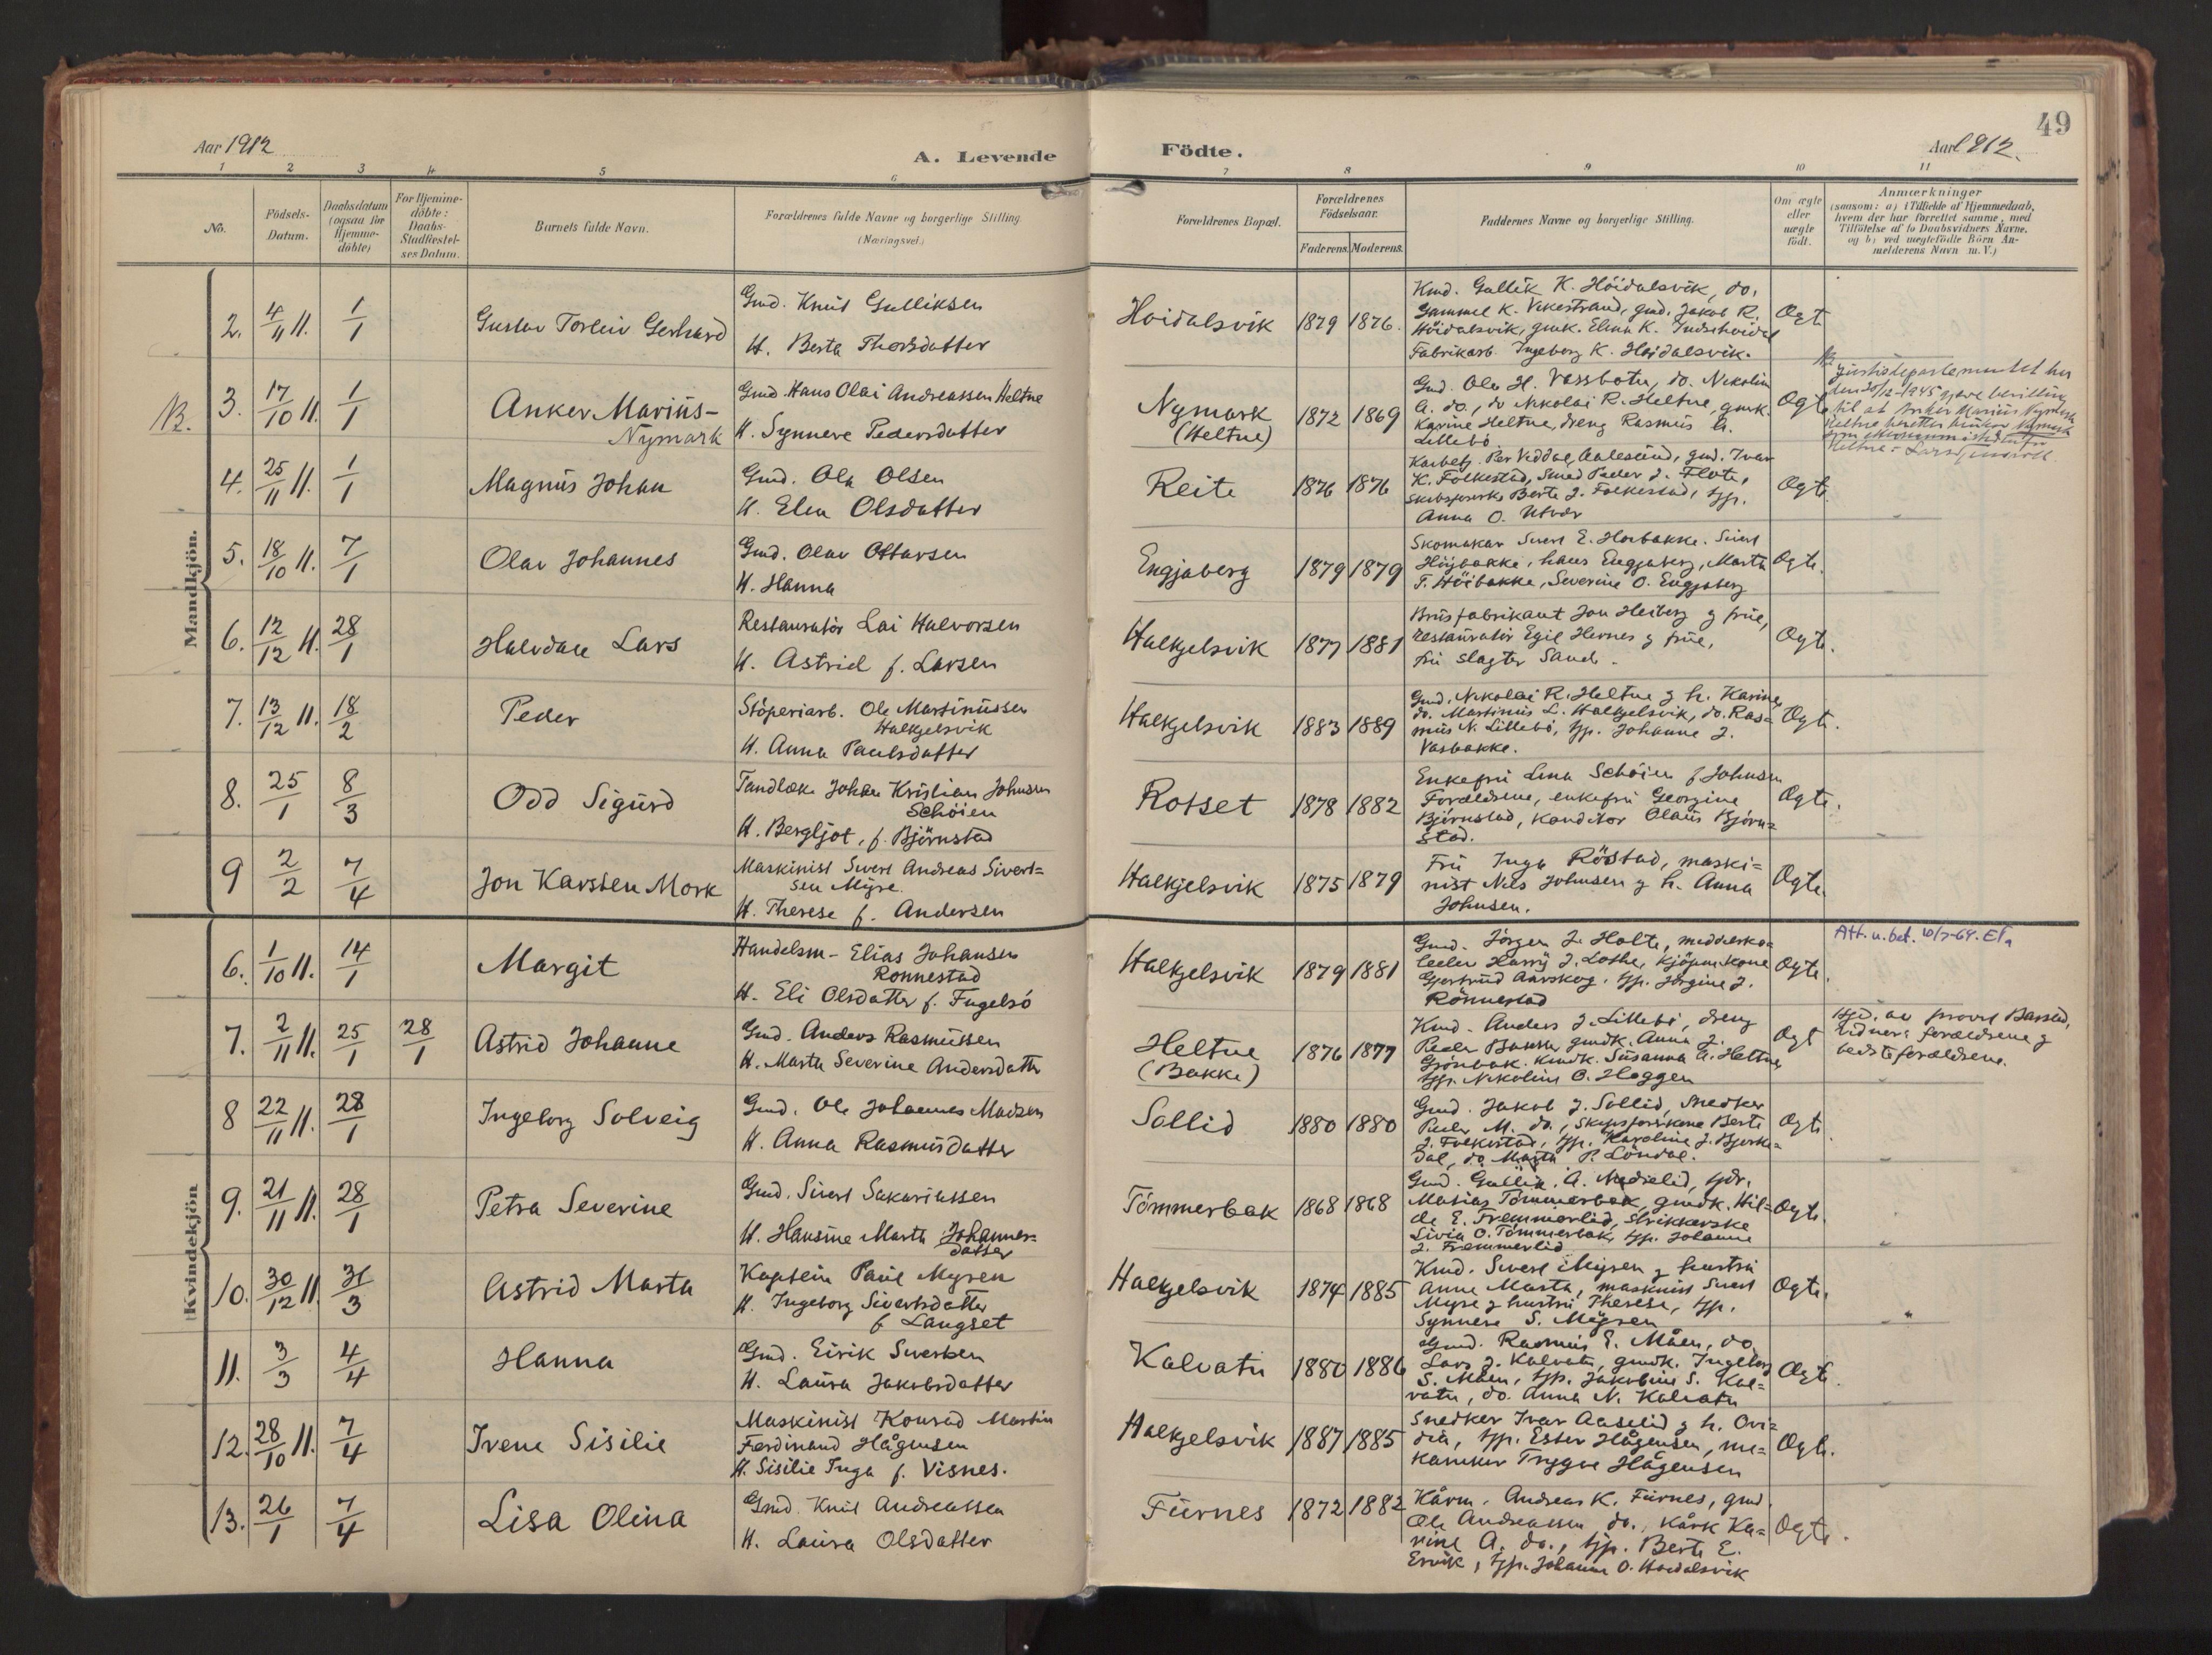 49
Aar 1912
A. Levende Födte.
Aar 1912.
1 2 3 4 5 6 7 8 9 10 11
No.
Födsels-
Datum.
Daabsdatum
(ogsaa for
Hjemme-
döbte)
For Hjemme-
döbte:
Daabs-
Stadfæstel-
ses Datum.
Barnets fulde Navn.
Forældrenes fulde Navne og borgerlige Stilling
(Næringsvei.)
Forældrenes Bopæl.
Forældrenes
Födselsaar.
Faderens. Moderens.
Faddernes Navne og borgerlige Stilling.
Om ægte
eller
uægte
födt.
Anmærkninger
(saasom: a) i Tilfælde af Hjemmedaab,
hvem der har forrettet samme, med
Tilföielse af to Daabsvidners Navne,
og b) ved uægtefödte Börn An-
melderens Navn m. V.)
Mandkjön.
2. 4/11 11. 1/1 Gustav Torleiv Gerhard
Gmd. Knut Gulliksen
H. Berta Thorsdatter
Hoidalsvik 1879 1876.
Kmd. Gullik K. Höidalsvik, do.
Gammel K. Vikestrand, gmd. Jakob R.
Höidalsvik, gmk. Elina K.
Fabrikarb. Ingeborg K. Hoidalsvik.
Ogt
NB. 3. 17/10 11. 1/1 Anker Marius-
Nymark
Gmd. Hans Olai Andreassen Heltne
H. Synnere Pedersdatter
Nymark
(Heltne)
1872 1869
Gmd. Ole H. Vassbotn, do. Nikolin
A. do., do Nikolai R. Heltne, gmk.
Karine Heltne, dreng Rasmus A.
Lillebö
Ogt
NB. Justisdepartementet har
den 20/12-1945 gjeve bevilling
til at Anker Marius Nymark
Heltne heretter brukar Nymark
4. 25/11 11. 1/1 Magnus Johan
Gmd. Ola Olsen
H. Elen Olsdatter
Reite 1876 1876
Per Viddal, Aalesund, gmd. Ivar
K. Folkestad, Smed Peder J. Flote,
Berte J. Folkestad, typ.
Anna O. Utvär
Ogt.
5. 18/10 11. 7/1 Olav Johannes
Gmd. Olav Ottarsen
H. Hanna
Engjaberg 1879 1879
Skomakar Sivert E. Hoibakke. Sivert
Höijbakke, hans Engjaberg, Marta
T. Höibakke, Severine O. Engjaberg
Ogte.
6. 12/12 11. 28/1 Halvdan Lars
Restauratör Lai Halvorsen
H. Astrid f. Larsen
Halkjelsvik 1877 1881
Brusfabrikant Jon Heiberg g frue,
restauratör Egil Hernes g frue,
fru slagter Sande.
Ogte.
7. 13/12 11. 18/2 Peder
Stöperiarb. Ole Martinussen
Halkjelsvik
H. Anna Paulsdatter
Halkjelsvik 1883 1889
Gmd. Nikolai R. Heltne g h. Karine,
do. Martinus L. Halkjelsvik, do. Ras-
mus N. Lillebö, typ. Johanne J.
Vasbakke.
Ogte.
8. 25/1 8/3 Odd Sigurd
Tandlæk. Johan Kristian Johnsen
Schöien
H. Bergljot, f. Björnstad
Rotset 1878 1882
Enkefru Lina Schöien f Johnsen
Forældrene, enkefru Georgine
Björnstad, konditor Olaus Bjorn-
stad.
Ogte.
9 2/2 7/4 Jon Karsten Mork
Maskinist Sivert Andreas Sivert-
sen Myre.
H. Therese f. Andersen
Halkjelsvik 1875 1879
Fru Inga Röstad, maski-
nist Nils Johnsen g h. Anna
Johnsen.
Ogte.
Kvindekjön
6. 1/10 11. 14/1 Margit
Handelsm- Elias Johansen
Ronnestad
H. Eli Olsdatter f. Fugelsö
Halkjelsvik 1879 1881
Gmd. Jörgen J. Holte, middelsko-
leelev Harry J. Lothe, kjöpm.kone
Gjertrud Aarskog, typ. Jörgine J.
Rönnestad
Ogte.
Att. u. bet. 10/7-64.
7. 2/11 11. 25/1 28/1 Astrid Johanne
Gmd. Anders Rasmussen
H. Marta Severine Andersdatter
Heltne
(Bakke)
1876 1877
Kmd. Anders J. Lillebö, dreng
Peder gmdk. Anna J.
Grönbak. Kmdk. Susanna A. Heltne
typ. Nikoline O. Hoggen
Ogt
Hjd. av provst Barstad,
vidner: forældrene g
bedsteforældrene.
8 22/11 11. 28/1 Ingeborg Solveig
Gmd. Ole Johannes Madsen
H. Anna Rasmusdatter
Sollid 1880 1880
Gmd. Jakob J. Sollid, Snedker
Peder M. do., Berte
J. Folkestad, typ. Karoline J. Bjerke-
dal, do. Marta P. Löndal.
Ogte.
9. 21/11 11. 28/1 Petra Severine
Gmd. Sivert Sakariassen
H. Hansine Marta Johannes-
datter
Tömmerbak 1868 1868
Gmd. Gullik A. Medielid,
Matias Tömmerbak, gmdk. Hil-
de E. Fremmerlid, strikkerske
Livia O. Tömmerbak, typ. Johanne
J. Fremmerlid
Ogte.
10. 30/12 11. 31/3 Astrid Marta
Kaptein Paul Myren
H. Ingeborg Sivertsdatter
f. Langset
Halkjelsvik 1874 1885
Kmd. Sivert Myren g hustru
Anne Marta, maskinist Sivert
Myre g hustru Therese, typ.
Synnere S. Myren
Ogte.
11. 3/3 4/4 Hanna
Gmd. Eirik Sivertsen
H. Laura Jakobsdatter
Kalvatn 1880 1886
Gmd. Rasmus E. Måen, do.
Lars J. Kalvatn, gmdk. Ingeborg
S. Måen, typ. Jakobine S. Kal-
vatn, do. Anna N. Kalvatn
Ogte.
12. 28/10 11. 7/4 Irene Sisilie
Maskinist Konrad Martin
Ferdinand Hågensen
H. Sisilie Inga f. Visnes.
Halkjelsvik 1887 1885
Snedker Ivar Aaselid g h. Ovi-
dia, typ. Ester Hågensen, me-
kaniker Trygve Hågensen
Ogte.
13. 26/1 7/4 Lisa Olina
Gmd. Knut Andreassen
H. Laura Olsdatter
Furnes 1872 1882
Kårm. Andreas K. Furnes, gmd.
Ole Andreassen do., Kårk Ka-
rine A. do., typ. Berte E.
Ervik, typ. Johanne O. Hoidalsvik
Ogte.